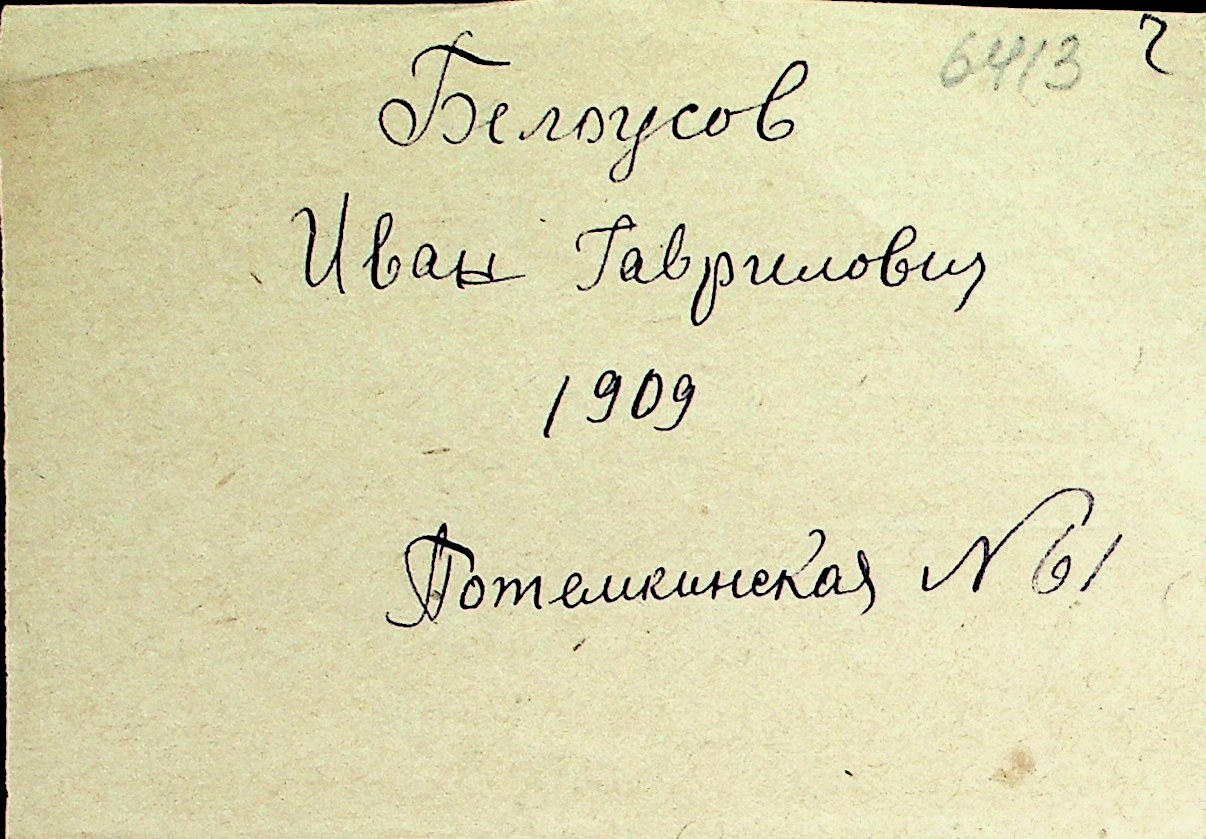 6413 ч
Белоусов
Иван Гаврилович
1909
Потемкинская № 61